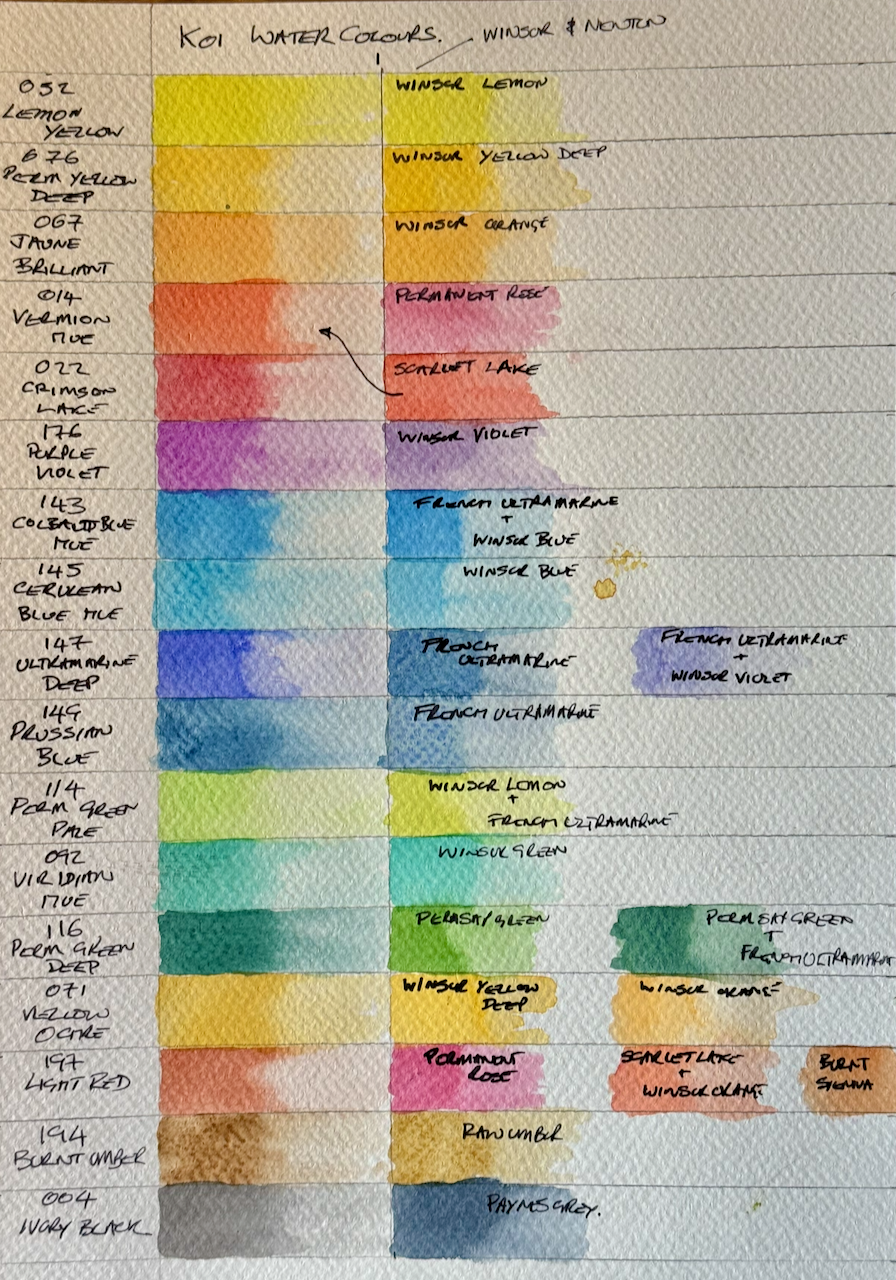 KOI WATER COLOURS.
WINSOR & NEWTON
052
LEMON
YELLOW
WINSOR LEMON
076
PERM YELLOW
DEEP
WINSOR YELLOW DEEP
067
JAUNE
BRILLIANT
WINSOR ORANGE
014
VERMION
HUE
PERMANENT ROSE
022
CRIMSON
LAKE
SCARLET LAKE
176
PURPLE
VIOLET
WINSOR VIOLET
143
BLUE
HUE
FRENCH ULTRAMARINE
+
WINSOR BLUE
145
CERULEAN
BLUE HUE
WINSOR BLUE
147
ULTRAMARINE
DEEP
FRENCH
ULTRAMARINE
FRENCH ULTRAMARINE
+
WINSOR VIOLET
149
PRUSSIAN
BLUE
FRENCH ULTRAMARINE
114
PERM GREEN
PALE
WINSOR LEMON
+
FRENCH ULTRAMARINE
092
VIRIDIAN
HUE
WINSOR GREEN
116
PERM GREEN
DEEP
PERM SAP GREEN
PERM SAP GREEN
+
FRENCH ULTRAMARINE
071
YELLOW
OCHRE
WINSOR YELLOW
DEEP
WINSOR ORANGE
197
LIGHT RED
PERMANENT
ROSE
SCARLET LAKE
+
WINSOR ORANGE
BURNT
SIENNA
194
BURNT UMBER
RAW UMBER
004
IVORY BLACK
PAYNES GREY.